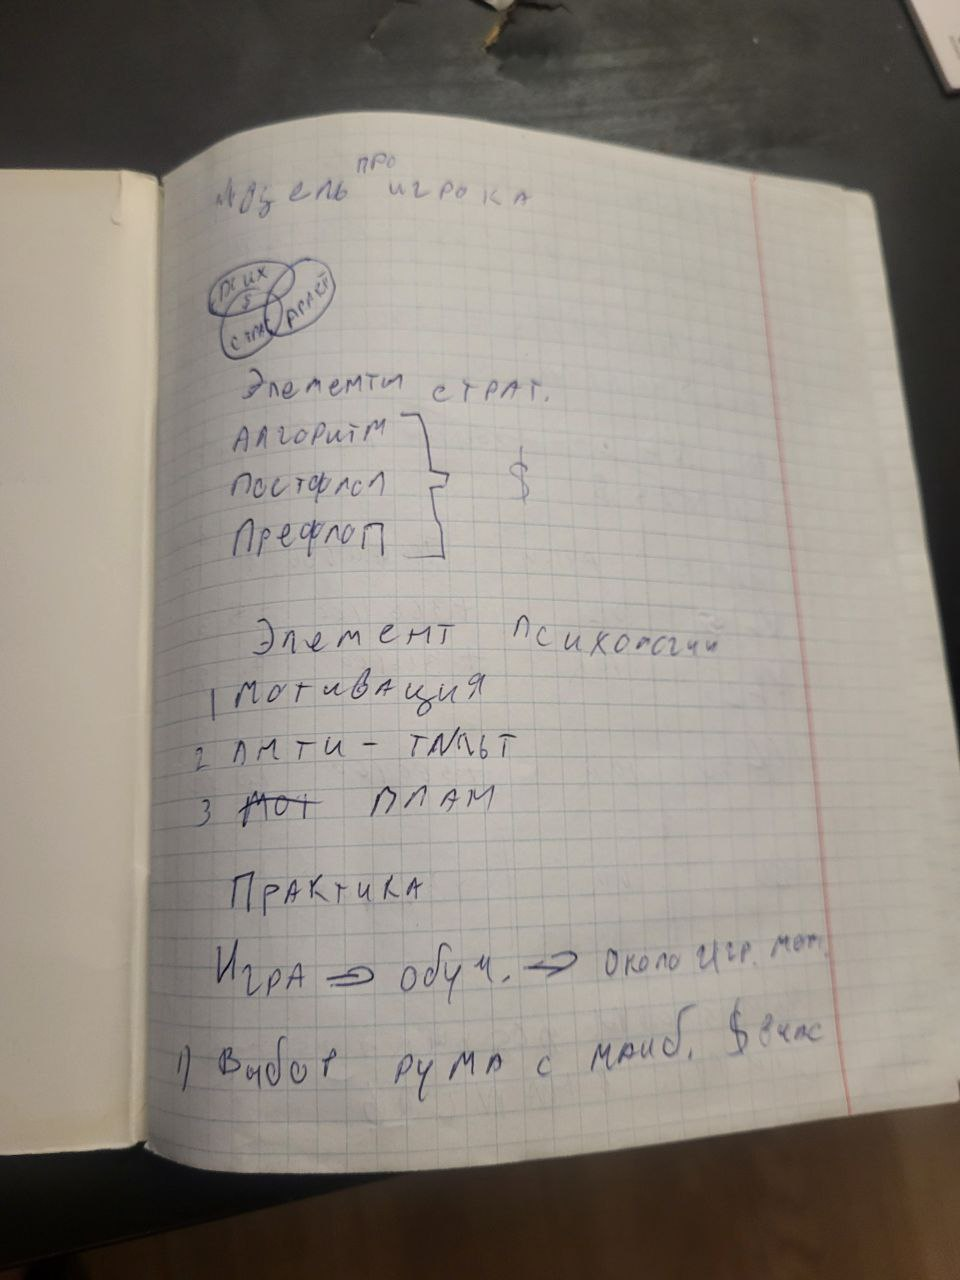 Модель про игрока
псих
$
страт
практ
Элементы страт.
Алгоритм
Постфлоп $
Префлоп
Элемент психологии
1 мотивация
2 Анти - тильт
3 Мот план
Практика
Игра ⇒ обуч. ⇒ около игр. мом.
1) Выбор рума с наиб. $ в час